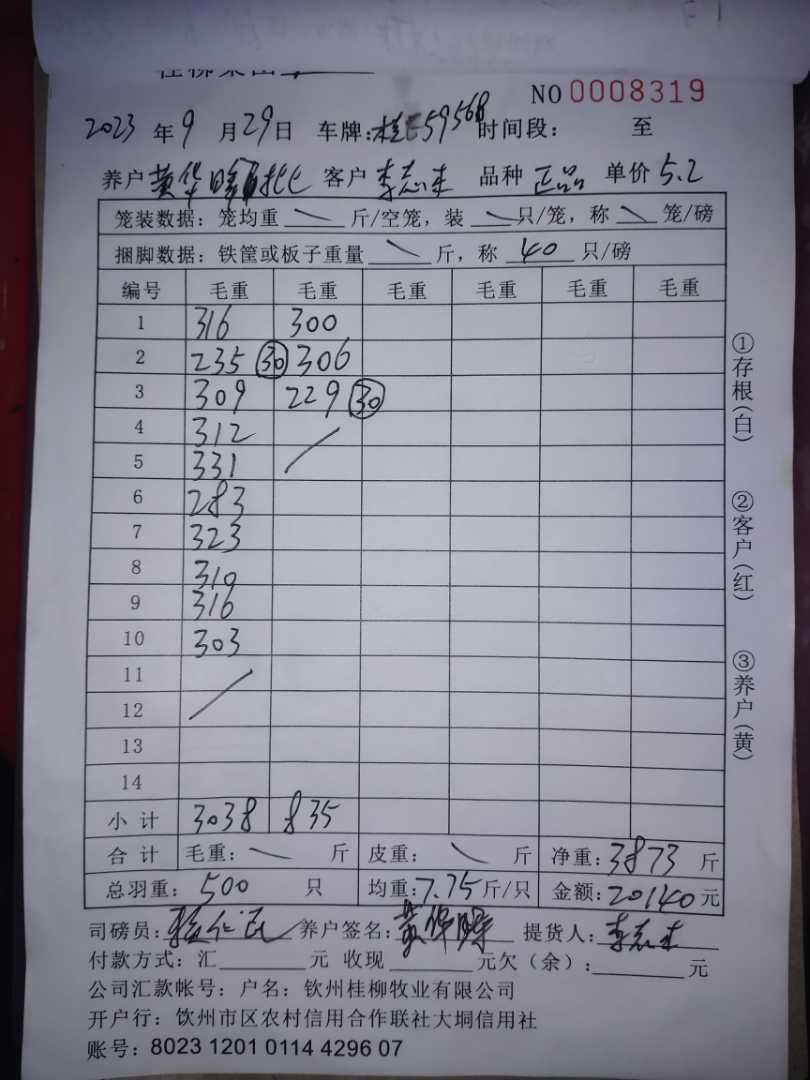 NO 0008319
2023 年 9 月 29 日 车牌: 桂E59568 时间段: 至
养户 黄华 客户 李志 品种 正品 单价 5.2
笼装数据: 笼均重 \ 斤/空笼, 装 \ 只/笼, 称 \ 笼/磅
捆脚数据: 铁筐或板子重量 \ 斤, 称 40 只/磅
编号 毛重 毛重 毛重 毛重 毛重 毛重
1 316 300
2 235 ㉚ 306
3 309 229 ㉚
4 312
5 331 /
6 283
7 323
8 310
9 316
10 303
11 /
12
13
14
小计 3038 835
合计 毛重: \ 斤 皮重: \ 斤 净重: 3873 斤
总羽重: 500 只 均重: 7.75 斤/只 金额: 20140 元
司磅员: 养户签名: 黄华 提货人: 李志
付款方式: 汇 元 收现 元欠(余): 元
公司汇款帐号: 户名: 钦州桂柳牧业有限公司
开户行: 钦州市区农村信用合作联社大垌信用社
账号: 8023 1201 0114 4296 07
①存根(白)
②客户(红)
③养户(黄)